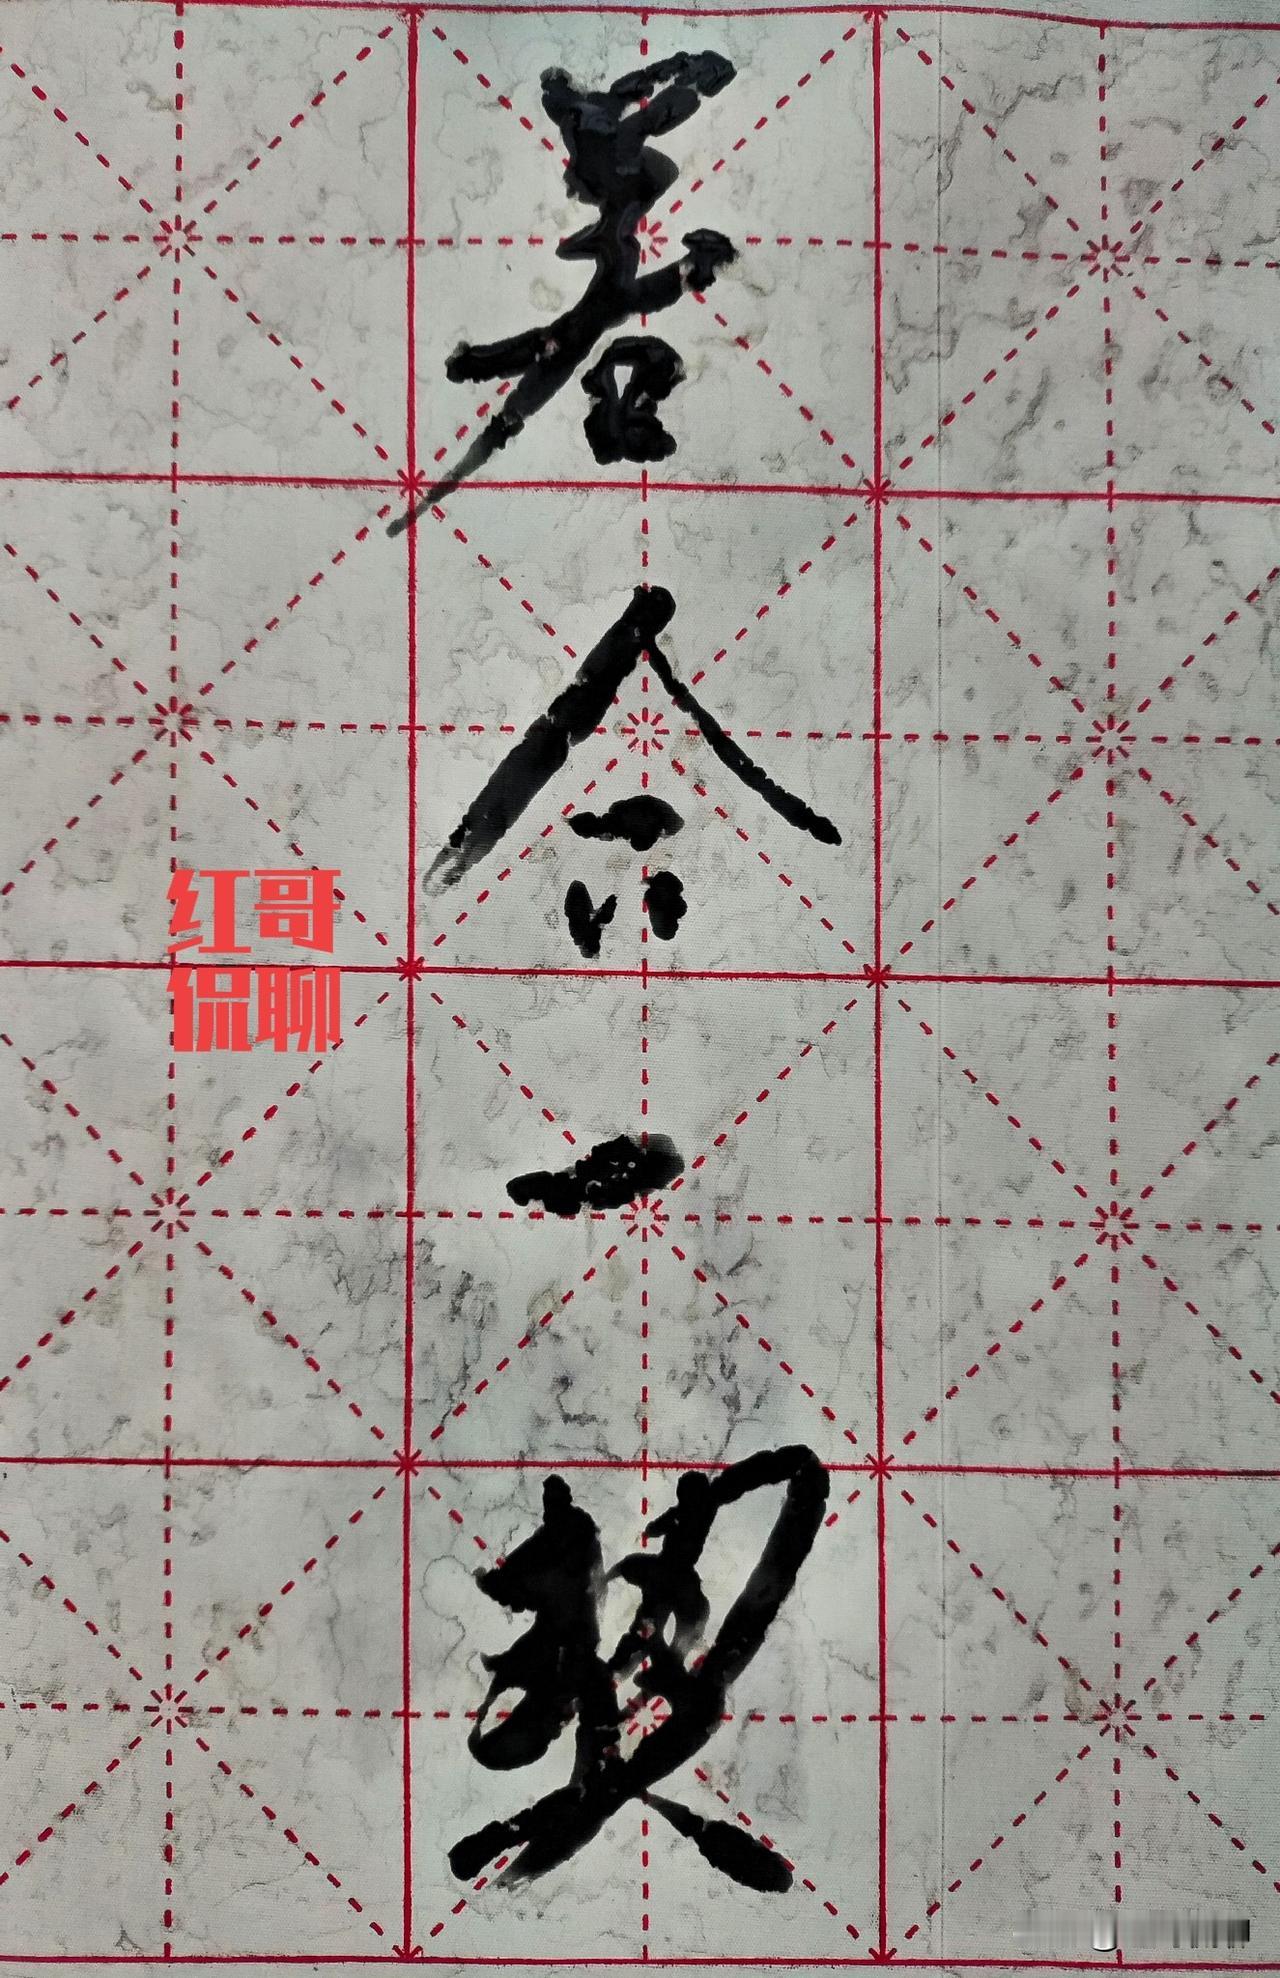 若合一契
红哥
侃聊